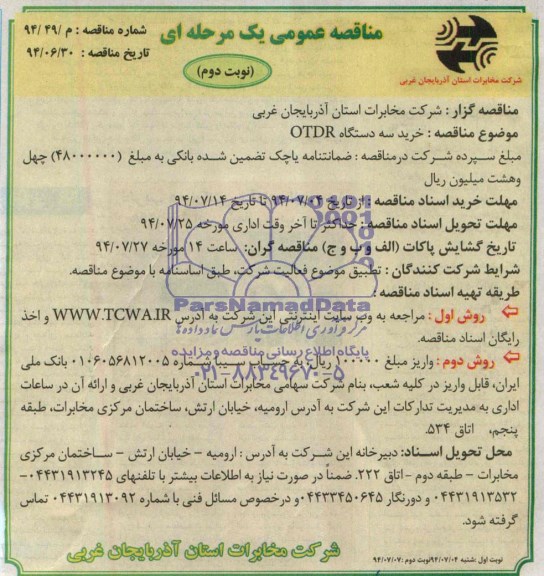 مناقصه عمومی یک مرحله ای
(نوبت دوم)
شماره مناقصه : م /۴۹/ ۹۴
تاریخ مناقصه : ۹۴/۰۶/۳۰
شرکت مخابرات استان آذربایجان غربی
مناقصه گزار : شرکت مخابرات استان آذربایجان غربی
موضوع مناقصه : خرید سه دستگاه OTDR
مبلغ سپرده شرکت درمناقصه : ضمانتنامه یاچک تضمین شده بانکی به مبلغ (۴۸۰۰۰۰۰۰) چهل
وهشت میلیون ریال
مهلت خرید اسناد مناقصه : از تاریخ ۹۴/۰۷/۰۴ تا تاریخ ۹۴/۰۷/۱۴
مهلت تحویل اسناد مناقصه: حداکثر تا آخر وقت اداری مورخه ۹۴/۰۷/۲۵
تاریخ گشایش پاکات (الف و ب و ج) مناقصه گران: ساعت ۱۴ مورخه ۹۴/۰۷/۲۷
شرایط شرکت کنندگان : تطبیق موضوع فعالیت شرکت، طبق اساسنامه با موضوع مناقصه.
طریقه تهیه اسناد مناقصه :
روش اول : مراجعه به وب سایت اینترنتی این شرکت به آدرس WWW.TCWA.IR و اخذ
رایگان اسناد مناقصه.
روش دوم : واریز مبلغ ۱۰۰۰۰۰ ریال، به حساب شماره ۰۱۰۶۰۵۶۸۱۲۰۰۵ بانک ملی
ایران، قابل واریز در کلیه شعب، بنام شرکت سهامی مخابرات استان آذربایجان غربی و ارائه آن در ساعات
اداری به مدیریت تدارکات این شرکت به آدرس ارومیه، خیابان ارتش، ساختمان مرکزی مخابرات، طبقه
پنجم، اتاق ۵۳۴.
محل تحویل اسناد: دبیرخانه این شرکت به آدرس : ارومیه - خیابان ارتش - ساختمان مرکزی
مخابرات - طبقه دوم - اتاق ۲۲۲. ضمناً در صورت نیاز به اطلاعات بیشتر با تلفنهای ۰۴۴۳۱۹۱۳۲۴۵-
۰۴۴۳۱۹۱۳۵۳۲ و دورنگار ۰۴۴۳۳۴۵۰۶۴۵ و درخصوص مسائل فنی با شماره ۰۴۴۳۱۹۱۳۰۹۲ تماس
گرفته شود.
شرکت مخابرات استان آذربایجان غربی
نوبت اول :شنبه ۹۴/۰۷/۰۴نوبت دوم :۹۴/۰۷/۰۷
ParsNamadData
مرکز فرآوری اطلاعات پارس نماد داده ها
پایگاه اطلاع رسانی مناقصه و مزایده
۰۲۱-۸۸۳۴۹۶۷۰-۵